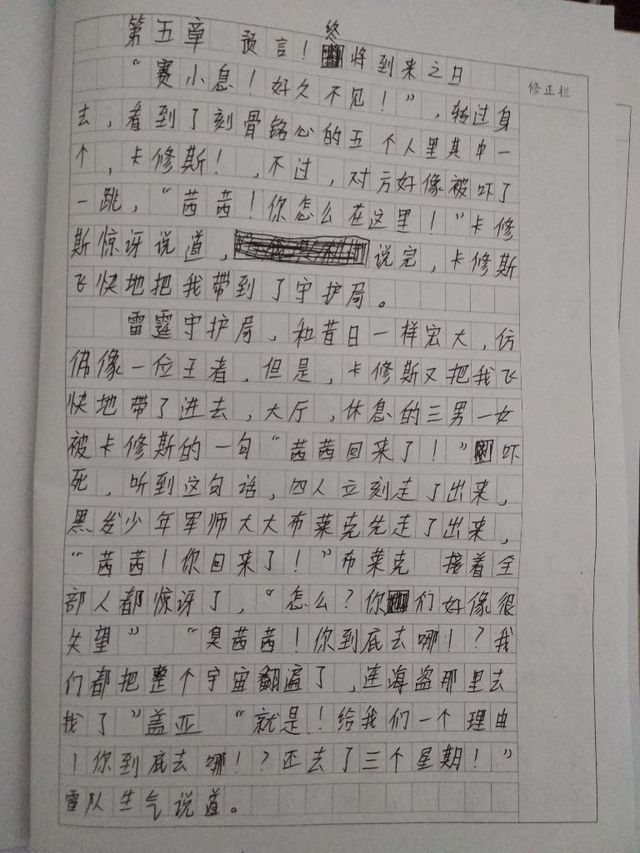 第五章 预言！终将到来之日
修正栏
“赛小息！好久不见！”，转过身
去，看到了刻骨铭心的五个人里其中一
个，卡修斯！，不过，对方好像被吓了
一跳，“茜茜！你怎么在这里！”卡修
斯惊讶说道，说完，卡修斯
飞快地把我带到了守护局。
雷霆守护局，和昔日一样宏大，仿
佛像一位王者，但是，卡修斯又把我飞
快地带了进去，大厅，休息的三男一女
被卡修斯的一句“茜茜回来了！”吓
死，听到这句话，四人立刻走了出来，
黑发少年军师大大布莱克先走了出来，
“茜茜！你回来了！”布莱克 接着全
部人都惊讶了，“怎么？你们好像很
失望” “臭茜茜！你到底去哪！？我
们都把整个宇宙翻遍了，连海盗那里去
找了”盖亚 “就是！给我们一个理由
！你到底去哪！？还去了三个星期！”
雷队生气说道。